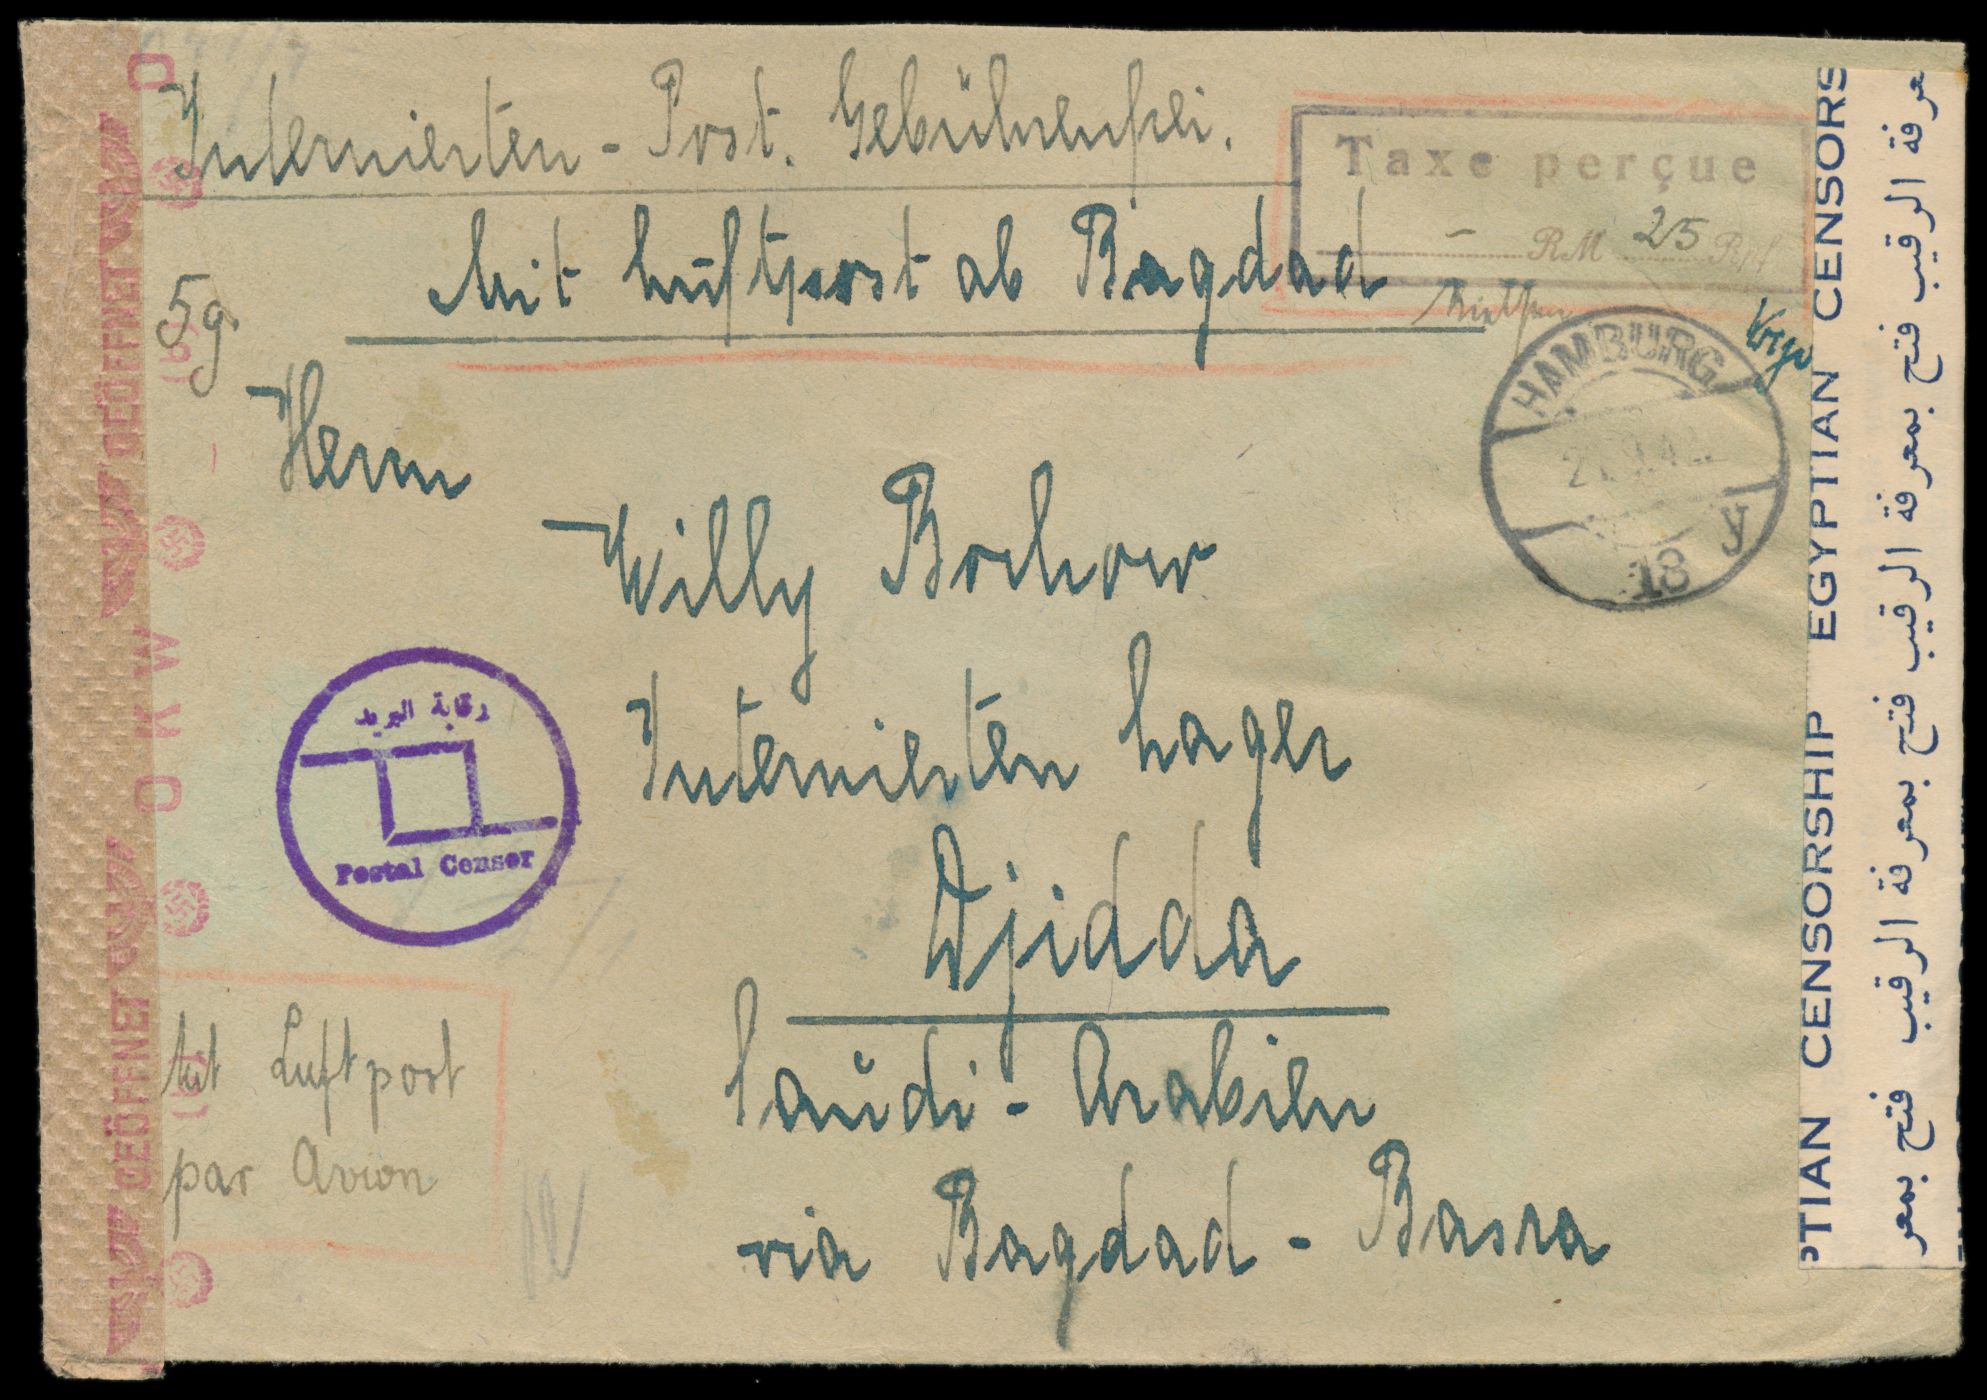 Internierten-Post. Gebührenfrei.
Taxe perçue
- RM 25 Rpf
Mit Luftpost ab Bagdad
5g.
HAMBURG
18 y
Herrn
Willy Bochow
Internierten Lager
Djidda
Saudi-Arabien
via Bagdad - Basra
رقابة البريد
Postal Censor
Mit Luftpost
par Avion
GEÖFFNET
GEÖFFNET
OKW
PTIAN CENSORSHIP EGYPTIAN CENSORS
فتح بمعرفة الرقيب فتح بمعرفة الرقيب فتح بمعرفة الرقيب